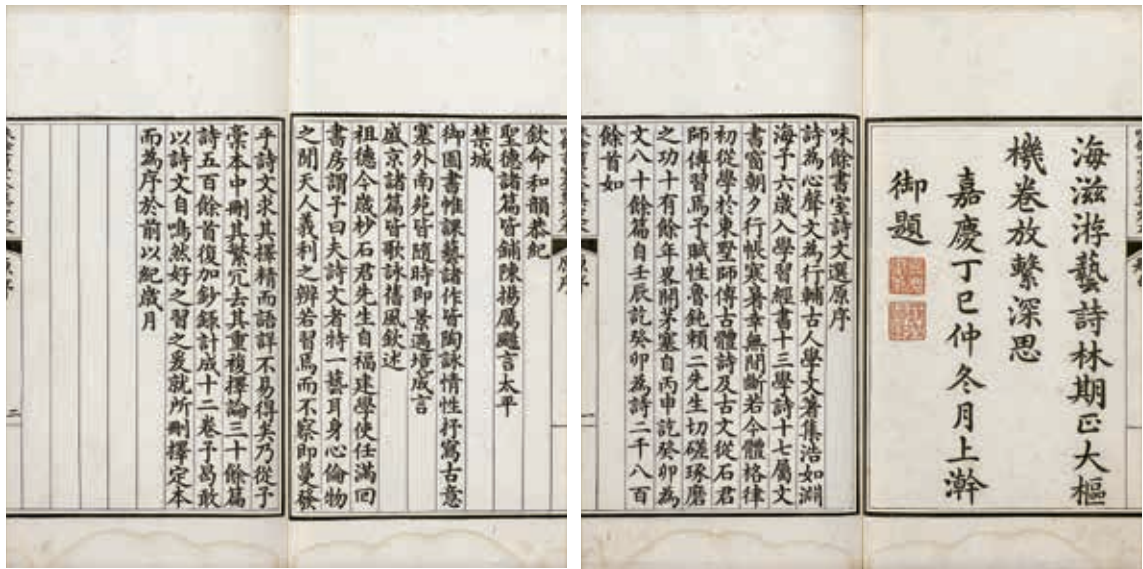 海滋游藝詩林期正大樞
機卷放繫深思
嘉慶丁巳仲冬月上澣
御題
味餘書室詩文選原序
詩為心聲文為行輔古人學文著集浩如淵
海予六歲入學習經書十三學詩十七屬文
書窗朝夕行帳寒暑幸無間斷若今體格律
初從學於東墅師傅古體詩及古文從石君
師傅習焉予賦性魯鈍賴二先生切磋琢磨
之功十有餘年畧開茅塞自丙申訖癸卯為
文八十餘篇自壬辰訖癸卯為詩二千八百
餘首如
欽命和韻恭紀
聖德諸篇皆鋪陳揚厲颺言太平
禁城
御園書帷課藝諸作皆陶詠情性抒寫古意
塞外南苑皆隨時即景遇境成言
盛京諸篇皆歌詠舊風欽述
祖德今歲杪石君先生自福建學使任滿回
書房謂予曰夫詩文者特一藝耳身心倫物
之間天人義利之辨若習焉而不察即蔓發
乎詩文求其擇精而語詳不易得矣乃從予
稾本中刪其繁冗去其重複擇論三十餘篇
詩五百餘首復加鈔錄計成十二卷予曷敢
以詩文自鳴然好之習之爰就所刪擇定本
而為序於前以紀歲月
二